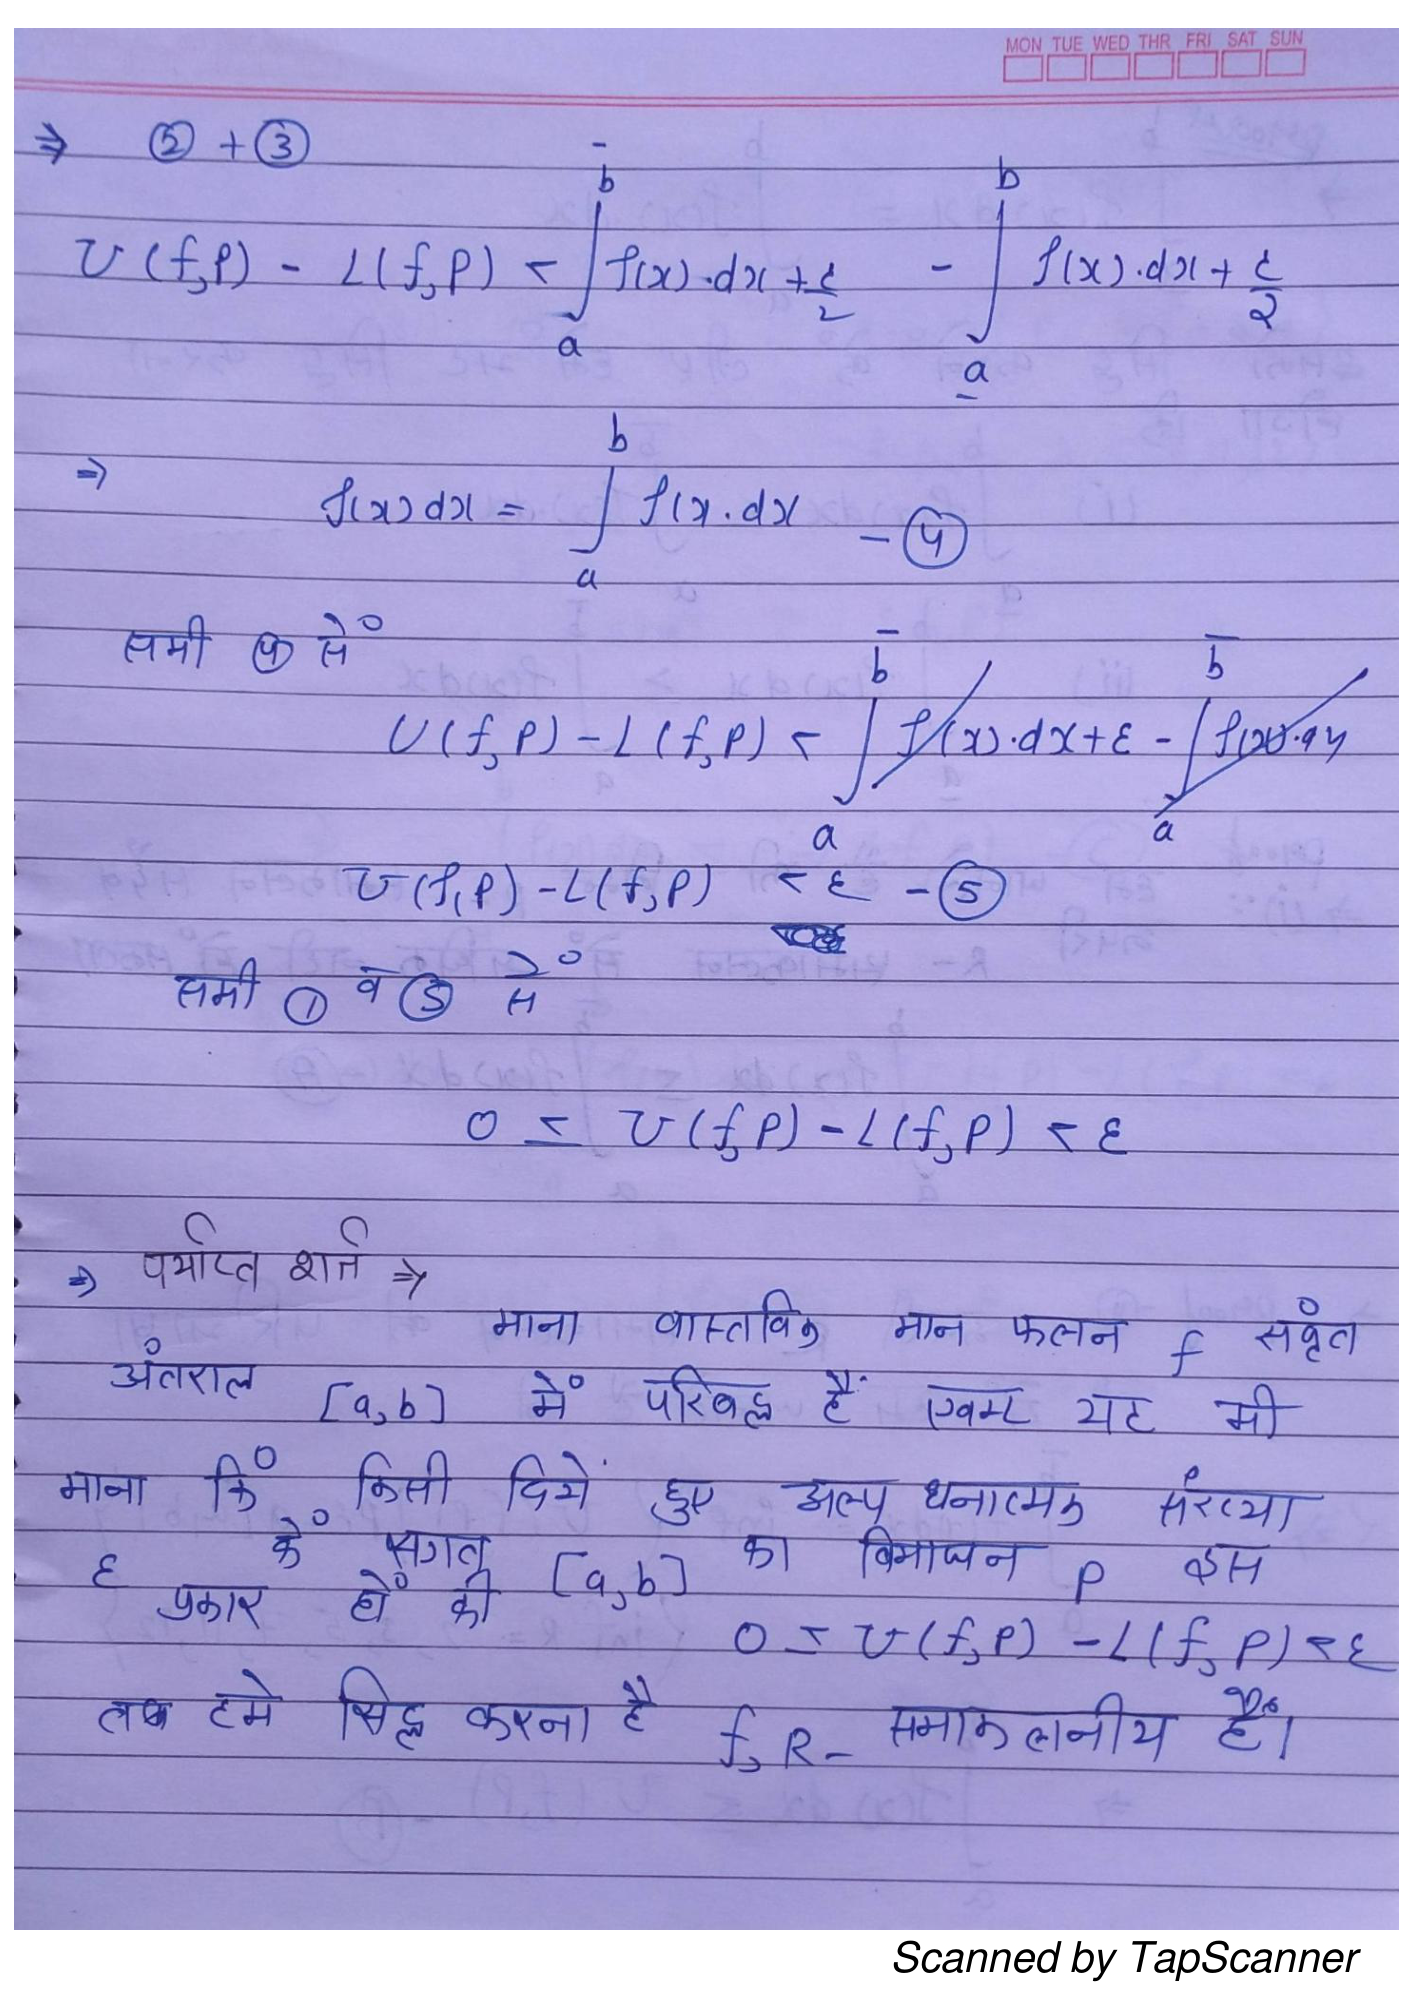 MON TUE WED THR FRI SAT SUN
⇒ ② + ③
U(f,P) - L(f,P) < ∫_a^b̄ f(x).dx + ε/2 - ∫_a̲^b f(x).dx + ε/2
⇒ f(x)dx = ∫_a^b f(x.dx - ④
समी ④ सें
U(f,P) - L(f,P) < ∫_a^b̄ f(x).dx + ε - ∫_a^b̄ f(x).dx
U(f,P) - L(f,P) < ε - ⑤
समी ① व ⑤ सें
0 ≤ U(f,P) - L(f,P) < ε
⇒ पर्याप्त शर्त ⇒
माना वास्तविक मान फलन f संवृत
अंतराल [a,b] में परिबद्ध हैं एवम यह भी
माना किं किसी दियें हुए अल्प धनात्मक संख्या
ε कें संगत [a,b] का विभाजन P इस
प्रकार हों की
0 ≤ U(f,P) - L(f,P) < ε
तब हमे सिद्ध करना है f, R- समाकलनीय हैं।
Scanned by TapScanner